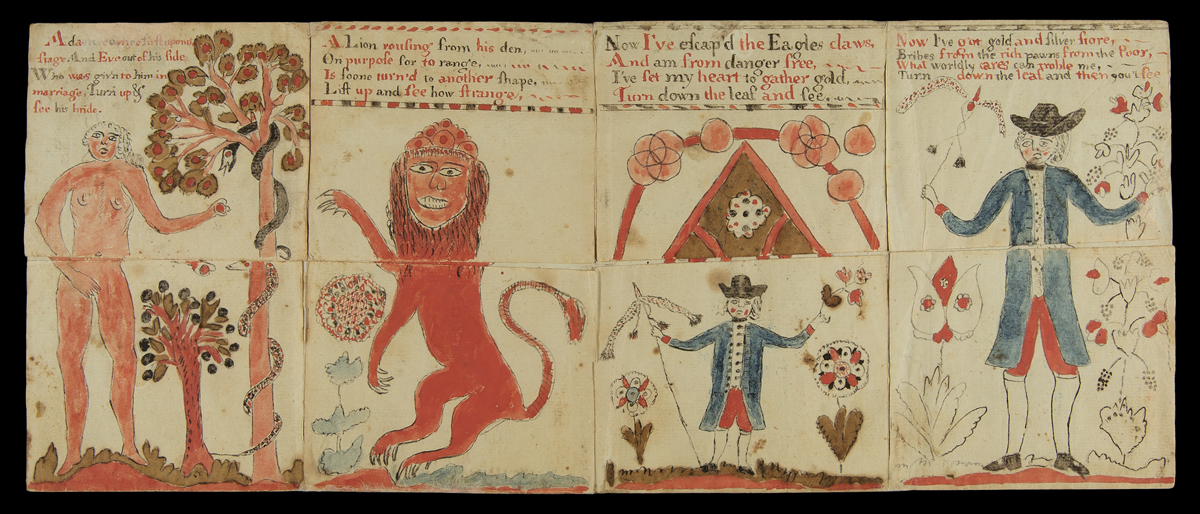 Adam comes first upon
stage, And Eve out of his side
Who was giv'n to him in
marriage, Turn up &
see his bride.
A Lion rousing from his den,
On purpose for to range,
Is soone turn'd to another shape,
Lift up and see how strange,
Now I've escap'd the Eagles claws,
And am from danger free,
I've set my heart to gather gold,
Turn down the leaf and see,
Now I've got gold and silver store,
Bribes from the rich pawns from the Poor,
What worldly cares can me,
Turn down the leaf and then you'll see